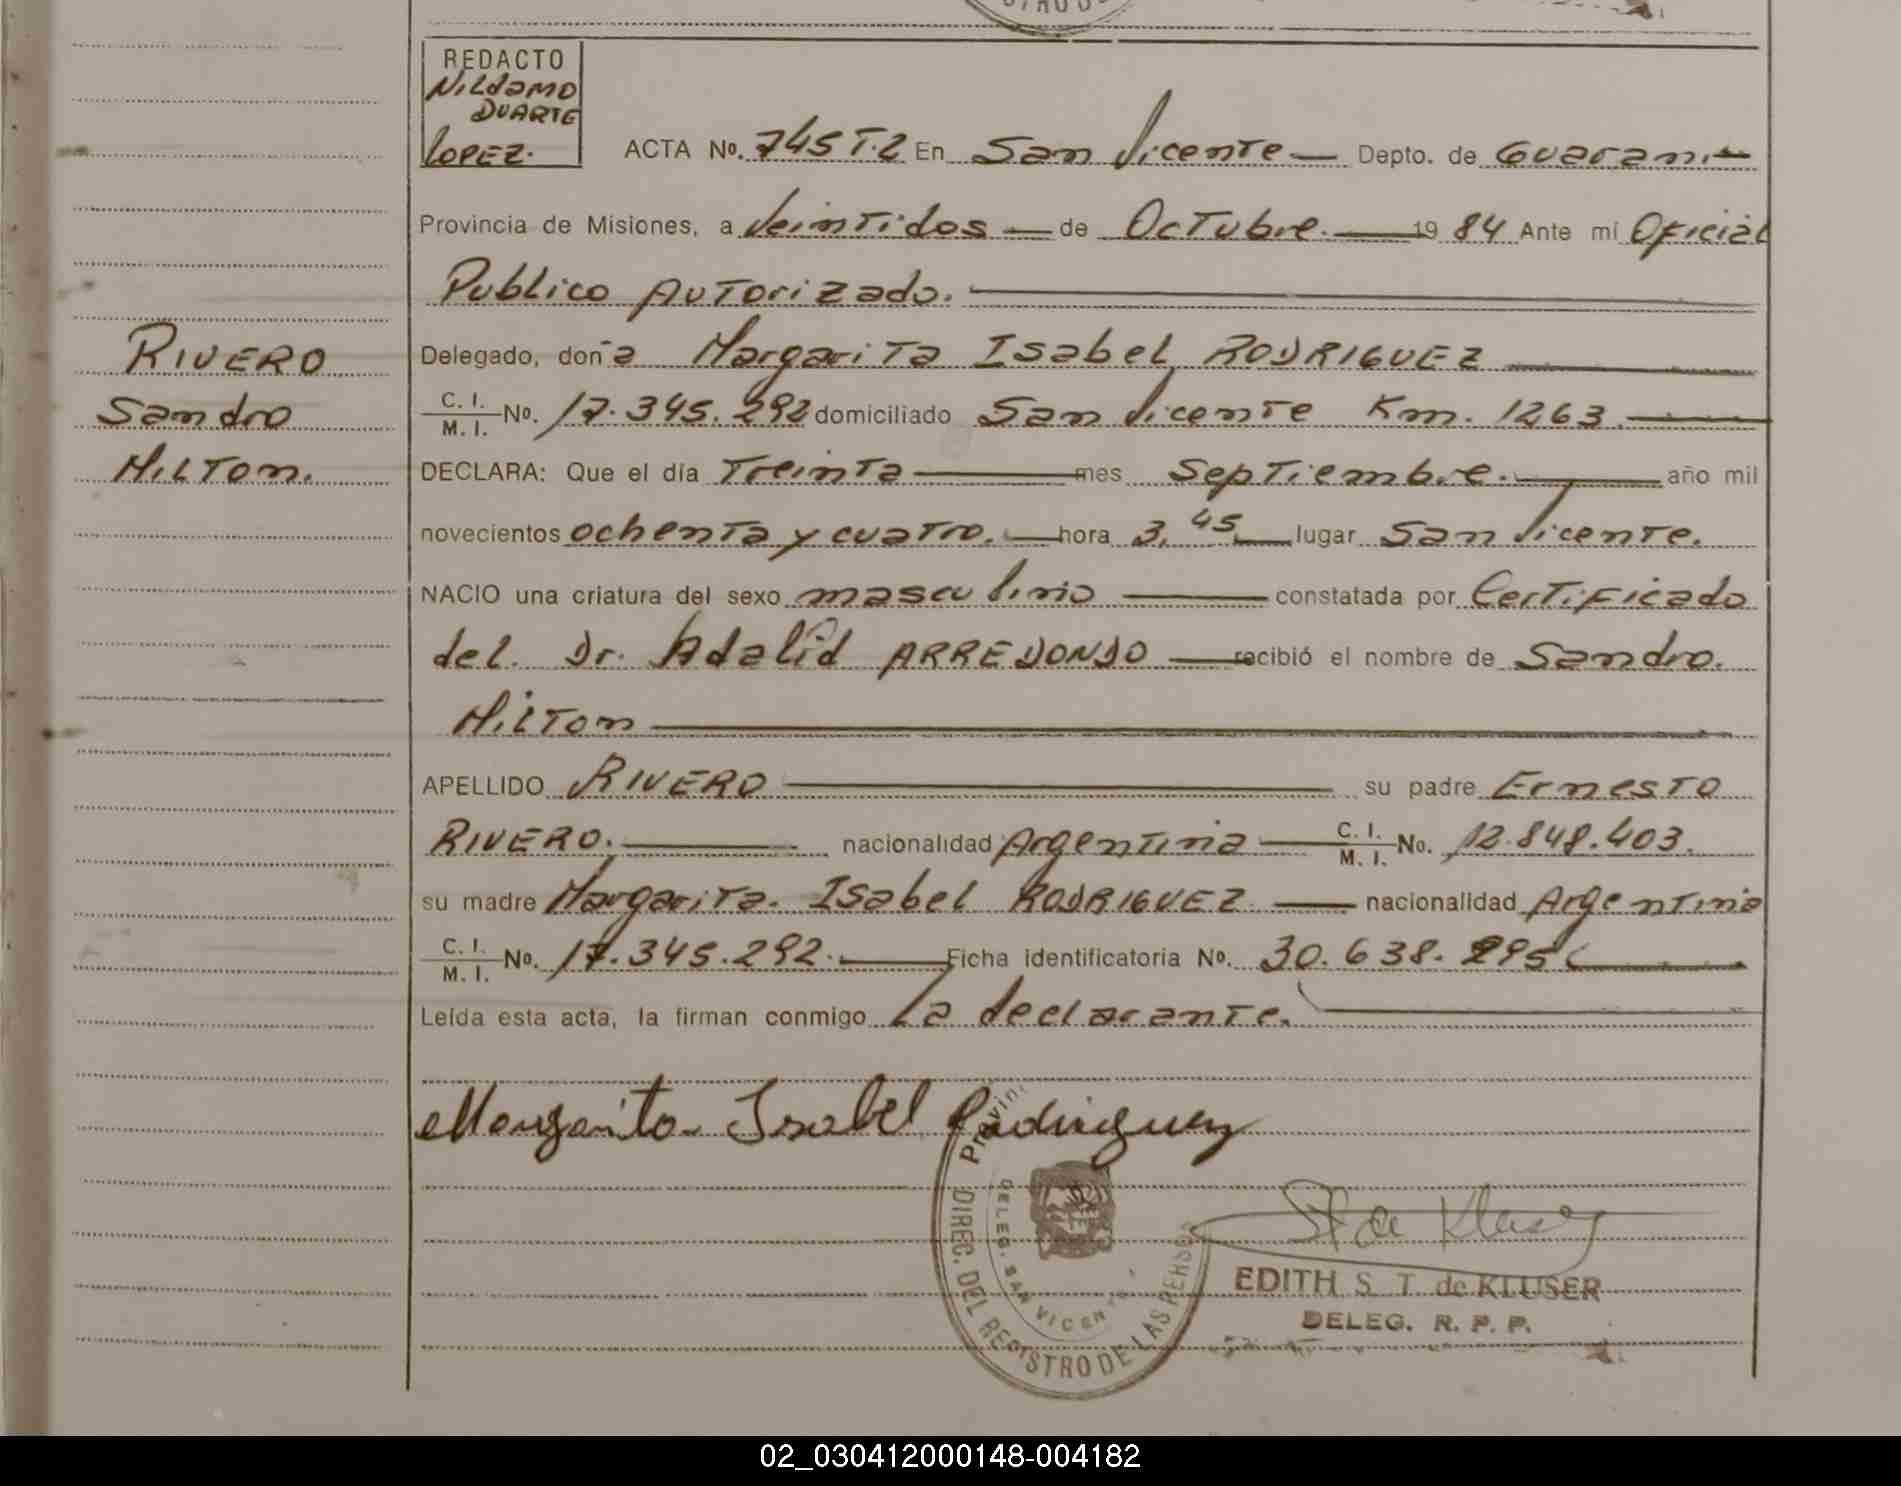 REDACTO
NILDAMO
DUARTE
LOPEZ.
ACTA No. 745 T.2 En San Vicente — Depto. de Guarani —
Provincia de Misiones, a veintidos — de Octubre. — 19 84 Ante mí Oficial
Publico Autorizado.
Delegado, doña Margarita Isabel RODRIGUEZ
C. I. / M. I. No. 17.345.292 domiciliado San Vicente Km. 1263.
DECLARA: Que el día Treinta — mes Septiembre. — año mil
novecientos ochenta y cuatro. — hora 3,45 — lugar San Vicente.
NACIO una criatura del sexo masculino — constatada por Certificado
del. Dr. Adalid ARREDONDO — recibió el nombre de Sandro.
Milton
APELLIDO RIVERO — su padre Ernesto
RIVERO. — nacionalidad Argentina — C. I. / M. I. No. 12.848.403.
su madre Margarita. Isabel RODRIGUEZ — nacionalidad Argentina
C. I. / M. I. No. 17.345.292. — Ficha identificatoria No. 30.638.
Leída esta acta, la firman conmigo La declarante.
RIVERO
Sandro
MILTON.
Margarita Isabel Rodriguez
Provin
DIREC. DEL REGISTRO DE LAS PERSON
DELEG. SAN VICENTE
EDITH S. T. de KLUSER
DELEG. R. P. P.
02_030412000148-004182